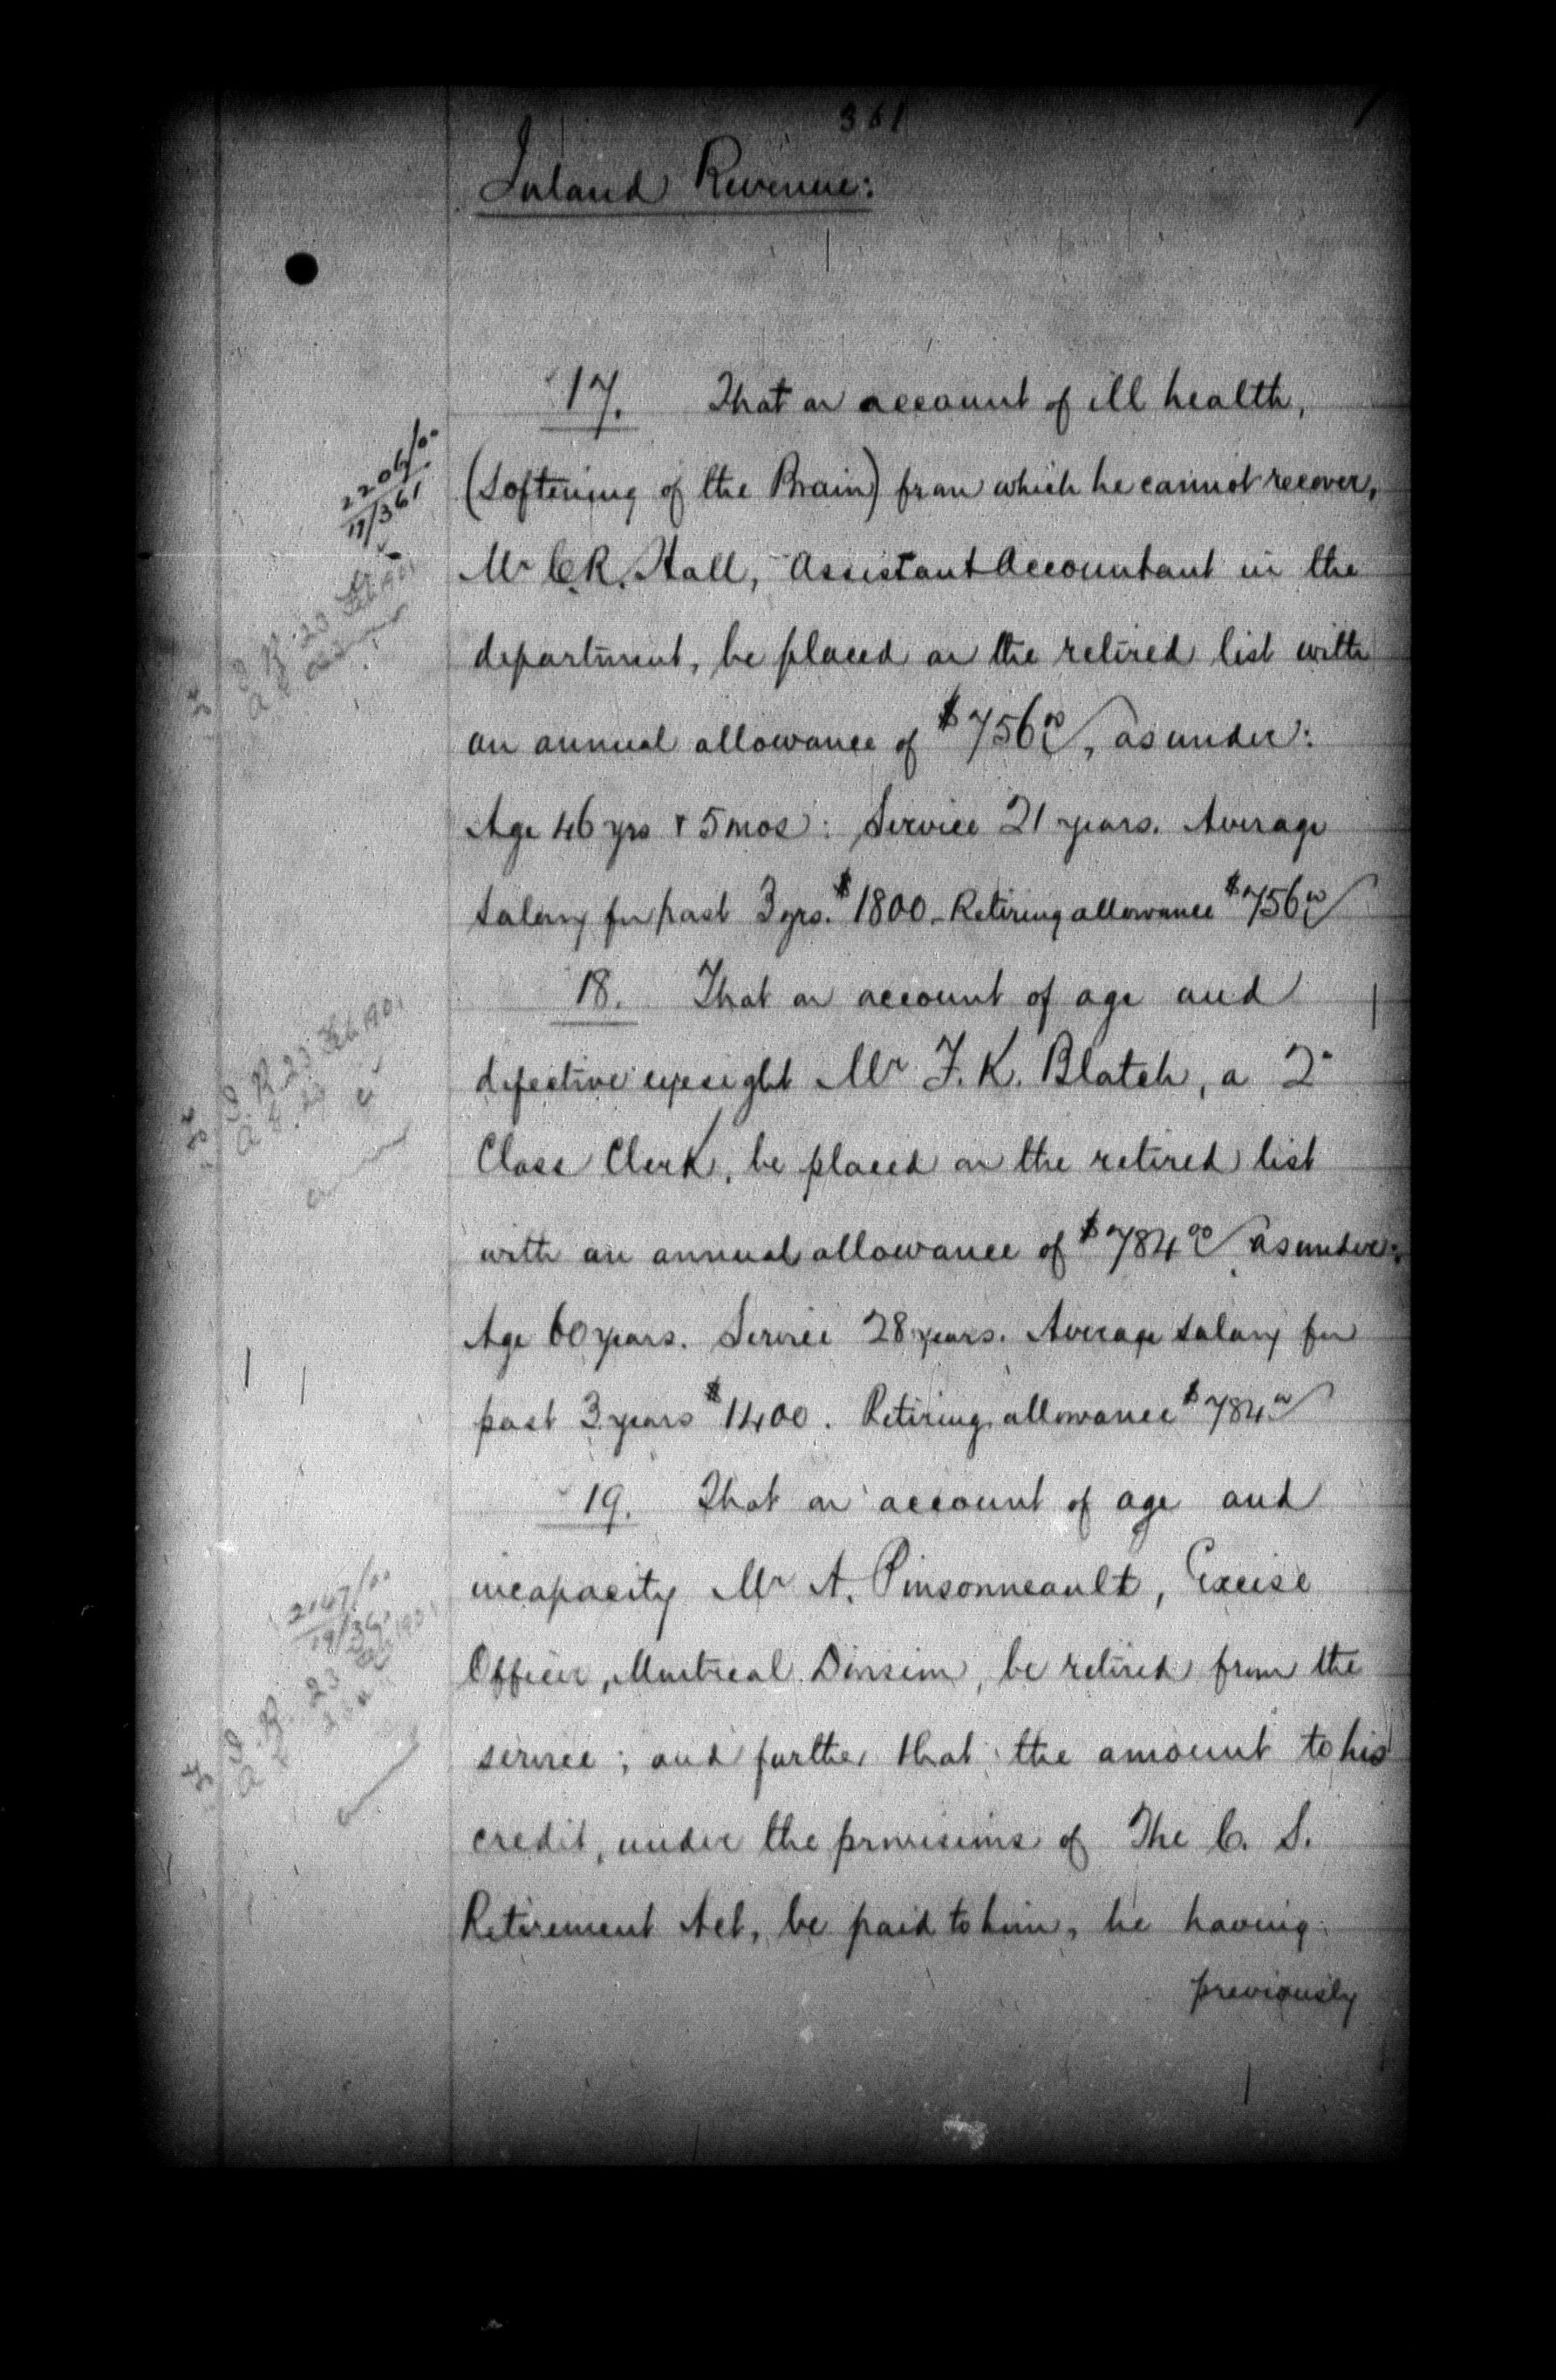 361
Inland Revenue:
17. That on account of ill health,
(Softening of the Brain) from which he cannot recover,
Mr C.R. Hall, Assistant Accountant in the
department, be placed on the retired list with
an annual allowance of $756 00, as under:
Age 46 yrs & 5 mos: Service 21 years. Average
Salary for past 3 yrs. $1800 - Retiring allowance $756 00
18. That on account of age and
defective eyesight Mr F. K. Blatch, a 2"
Class Clerk, be placed on the retired list
with an annual allowance of $784 00 as under:
Age 60 years. Service 28 years. Average salary for
past 3 years $1400. Retiring allowance $784 00
19. That on account of age and
incapacity Mr A. Pinsonneault, Excise
Officer, Montreal Division, be retired from the
service; and further that the amount to his
credit, under the provisions of The C. S.
Retirement Act, be paid to him, he having
previously
2206/00
17/361
I. R. 23 Feb 1901
I. R. 23 Feb 1901
2147/00
19/361
I. R. 23